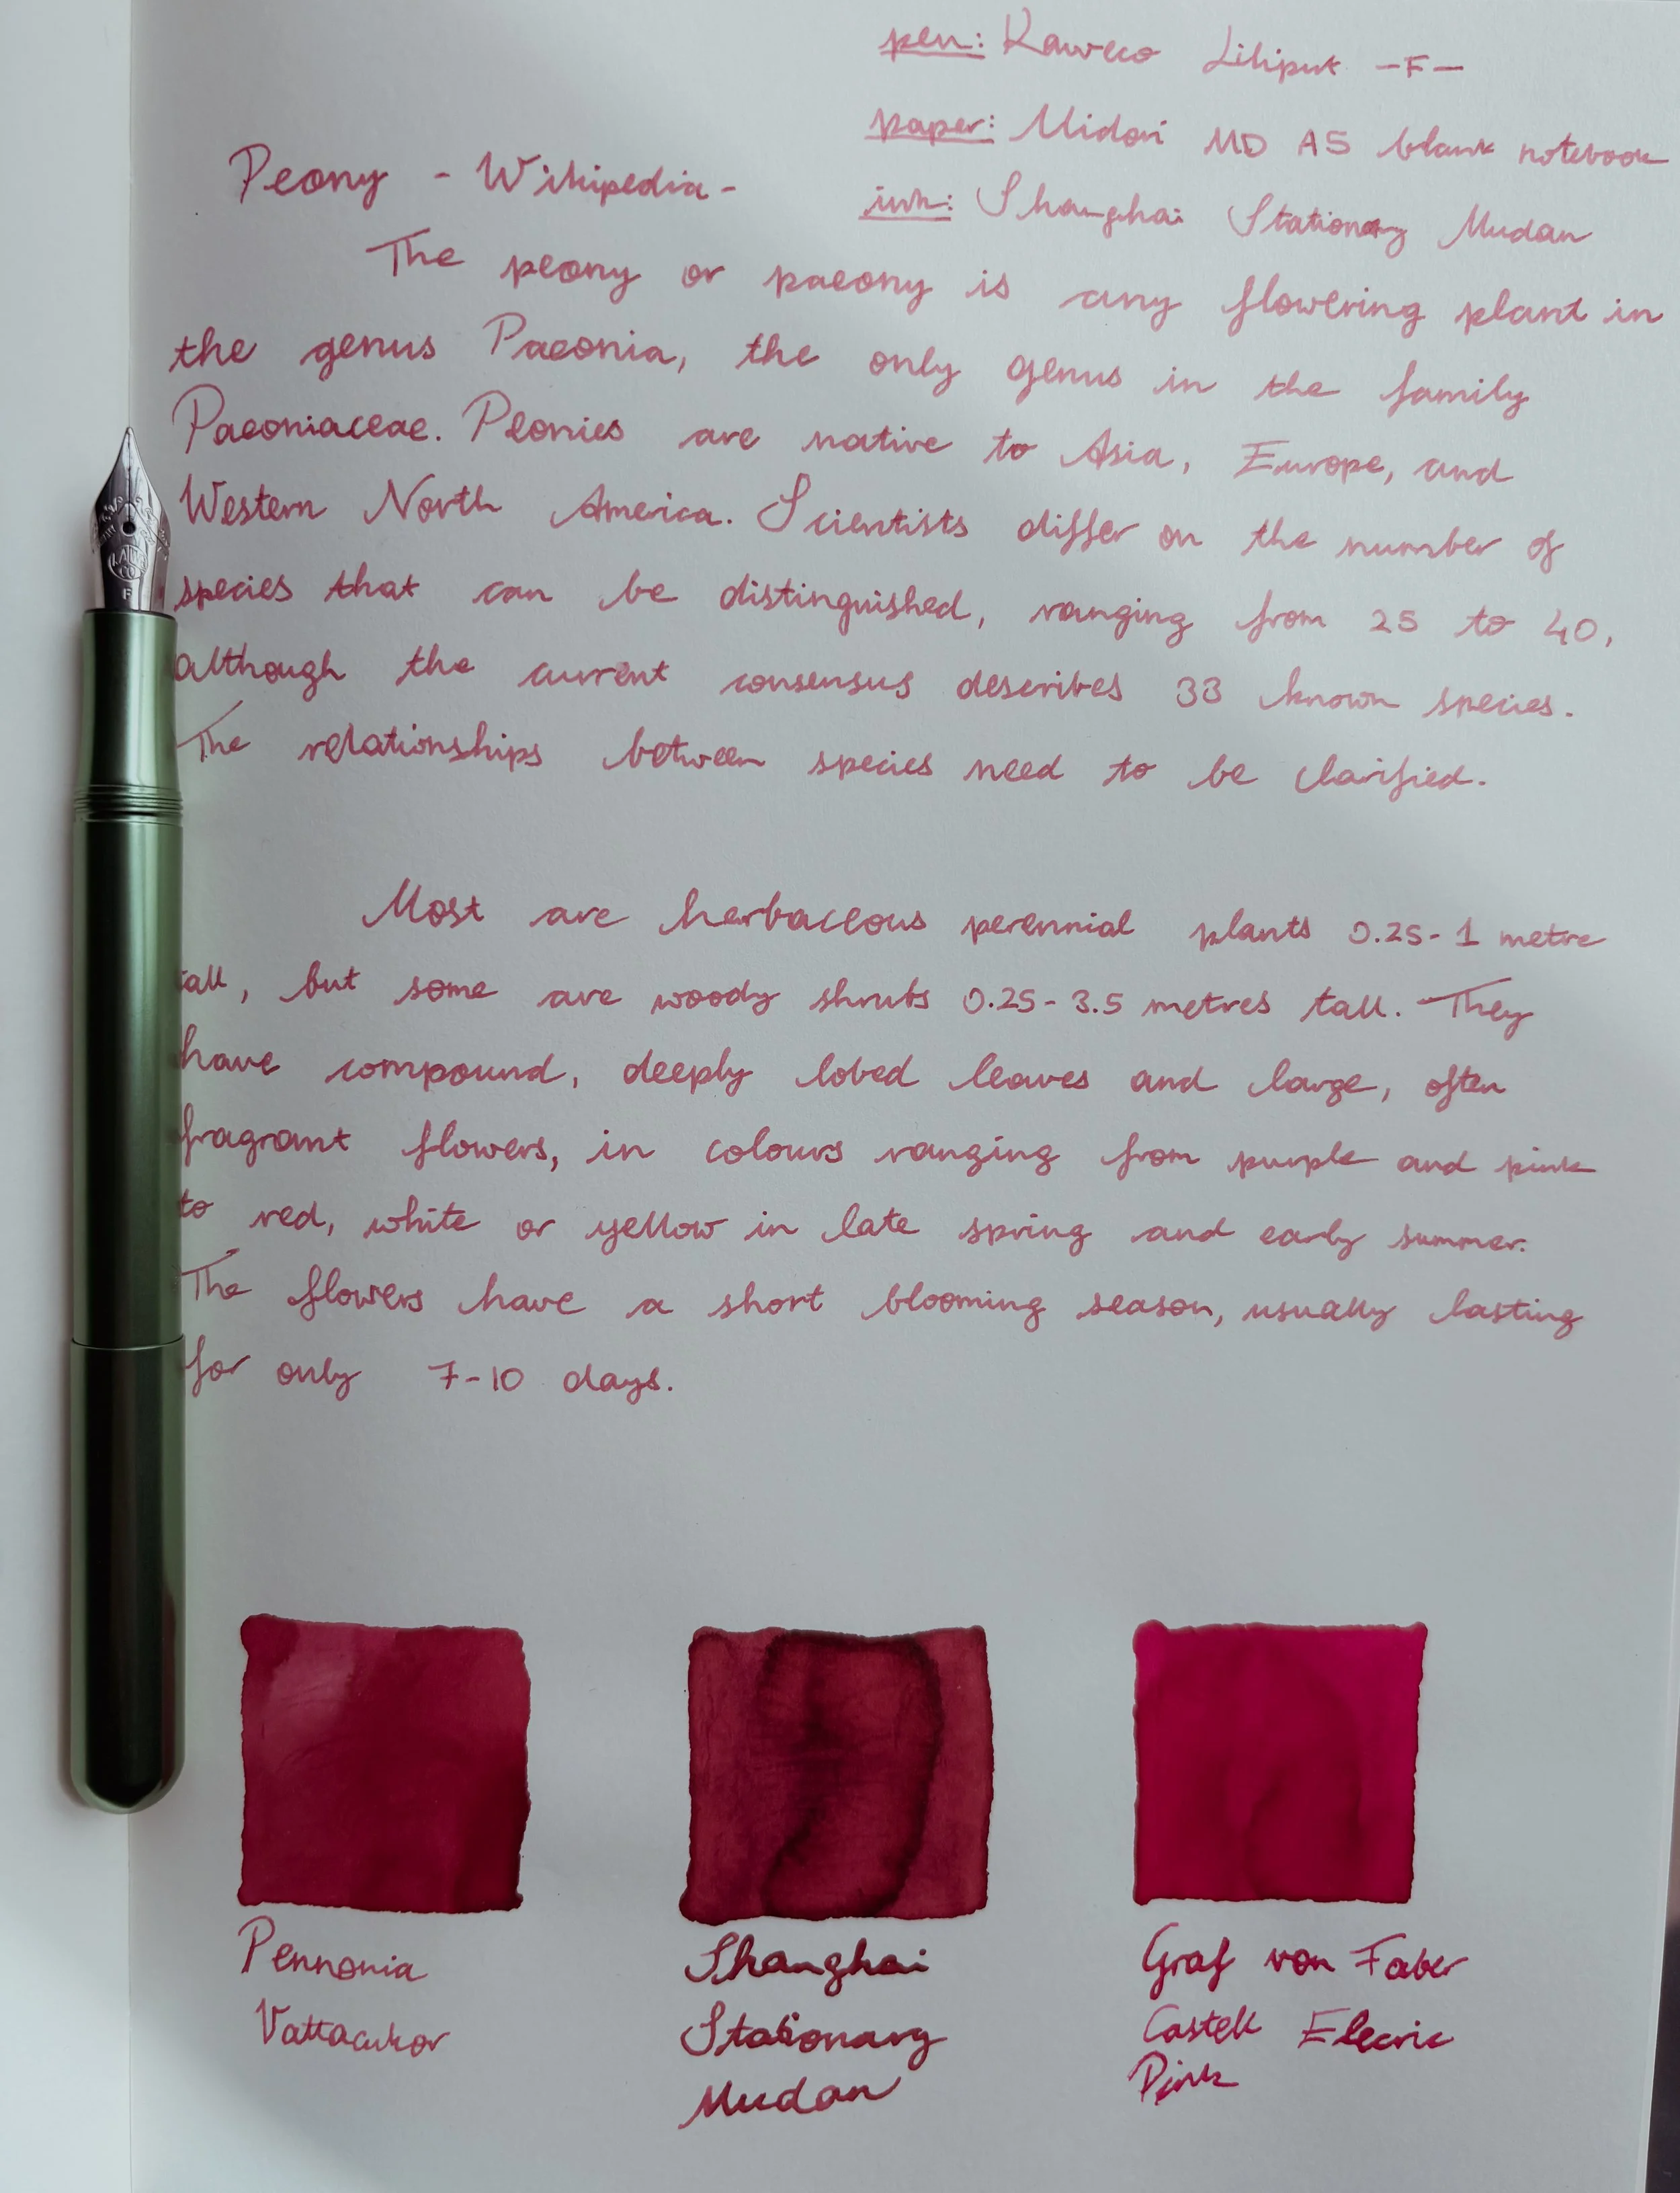 pen: Kaweco Liliput -F-
paper: Midori MD A5 blank notebook
ink: Shanghai Stationary Mudan
Peony - Wikipedia -
The peony or paeony is any flowering plant in
the genus Paeonia, the only genus in the family
Paeoniaceae. Peonies are native to Asia, Europe, and
Western North America. Scientists differ on the number of
species that can be distinguished, ranging from 25 to 40,
although the current consensus describes 33 known species.
The relationships between species need to be clarified.
Most are herbaceous perennial plants 0.25-1 metre
tall, but some are woody shrubs 0.25-3.5 metres tall. They
have compound, deeply lobed leaves and large, often
fragrant flowers, in colours ranging from purple and pink
to red, white or yellow in late spring and early summer.
The flowers have a short blooming season, usually lasting
for only 7-10 days.
KAWE
CO
F
Pennonia
Vattacukor
Shanghai
Stationary
Mudan
Graf von Faber
Castell Elecric
Pink